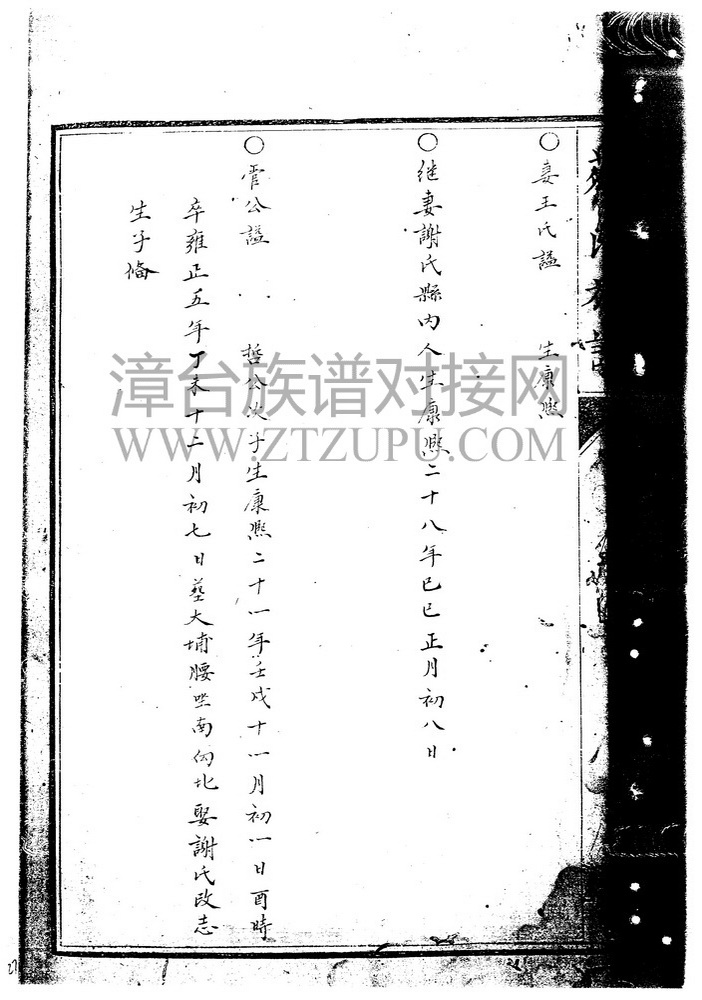 妻王氏謚 生康熙
继妻謝氏縣内人生康熙二十八年已已正月初八日
管公謚 哲公次子生康熙二十一年壬戌十一月初一日酉時
卒雍正五年丁未十二月初七日葬大埔腰坐南向北娶謝氏改志
生子偹
漳台族谱对接网
WWW.ZTZUPU.COM